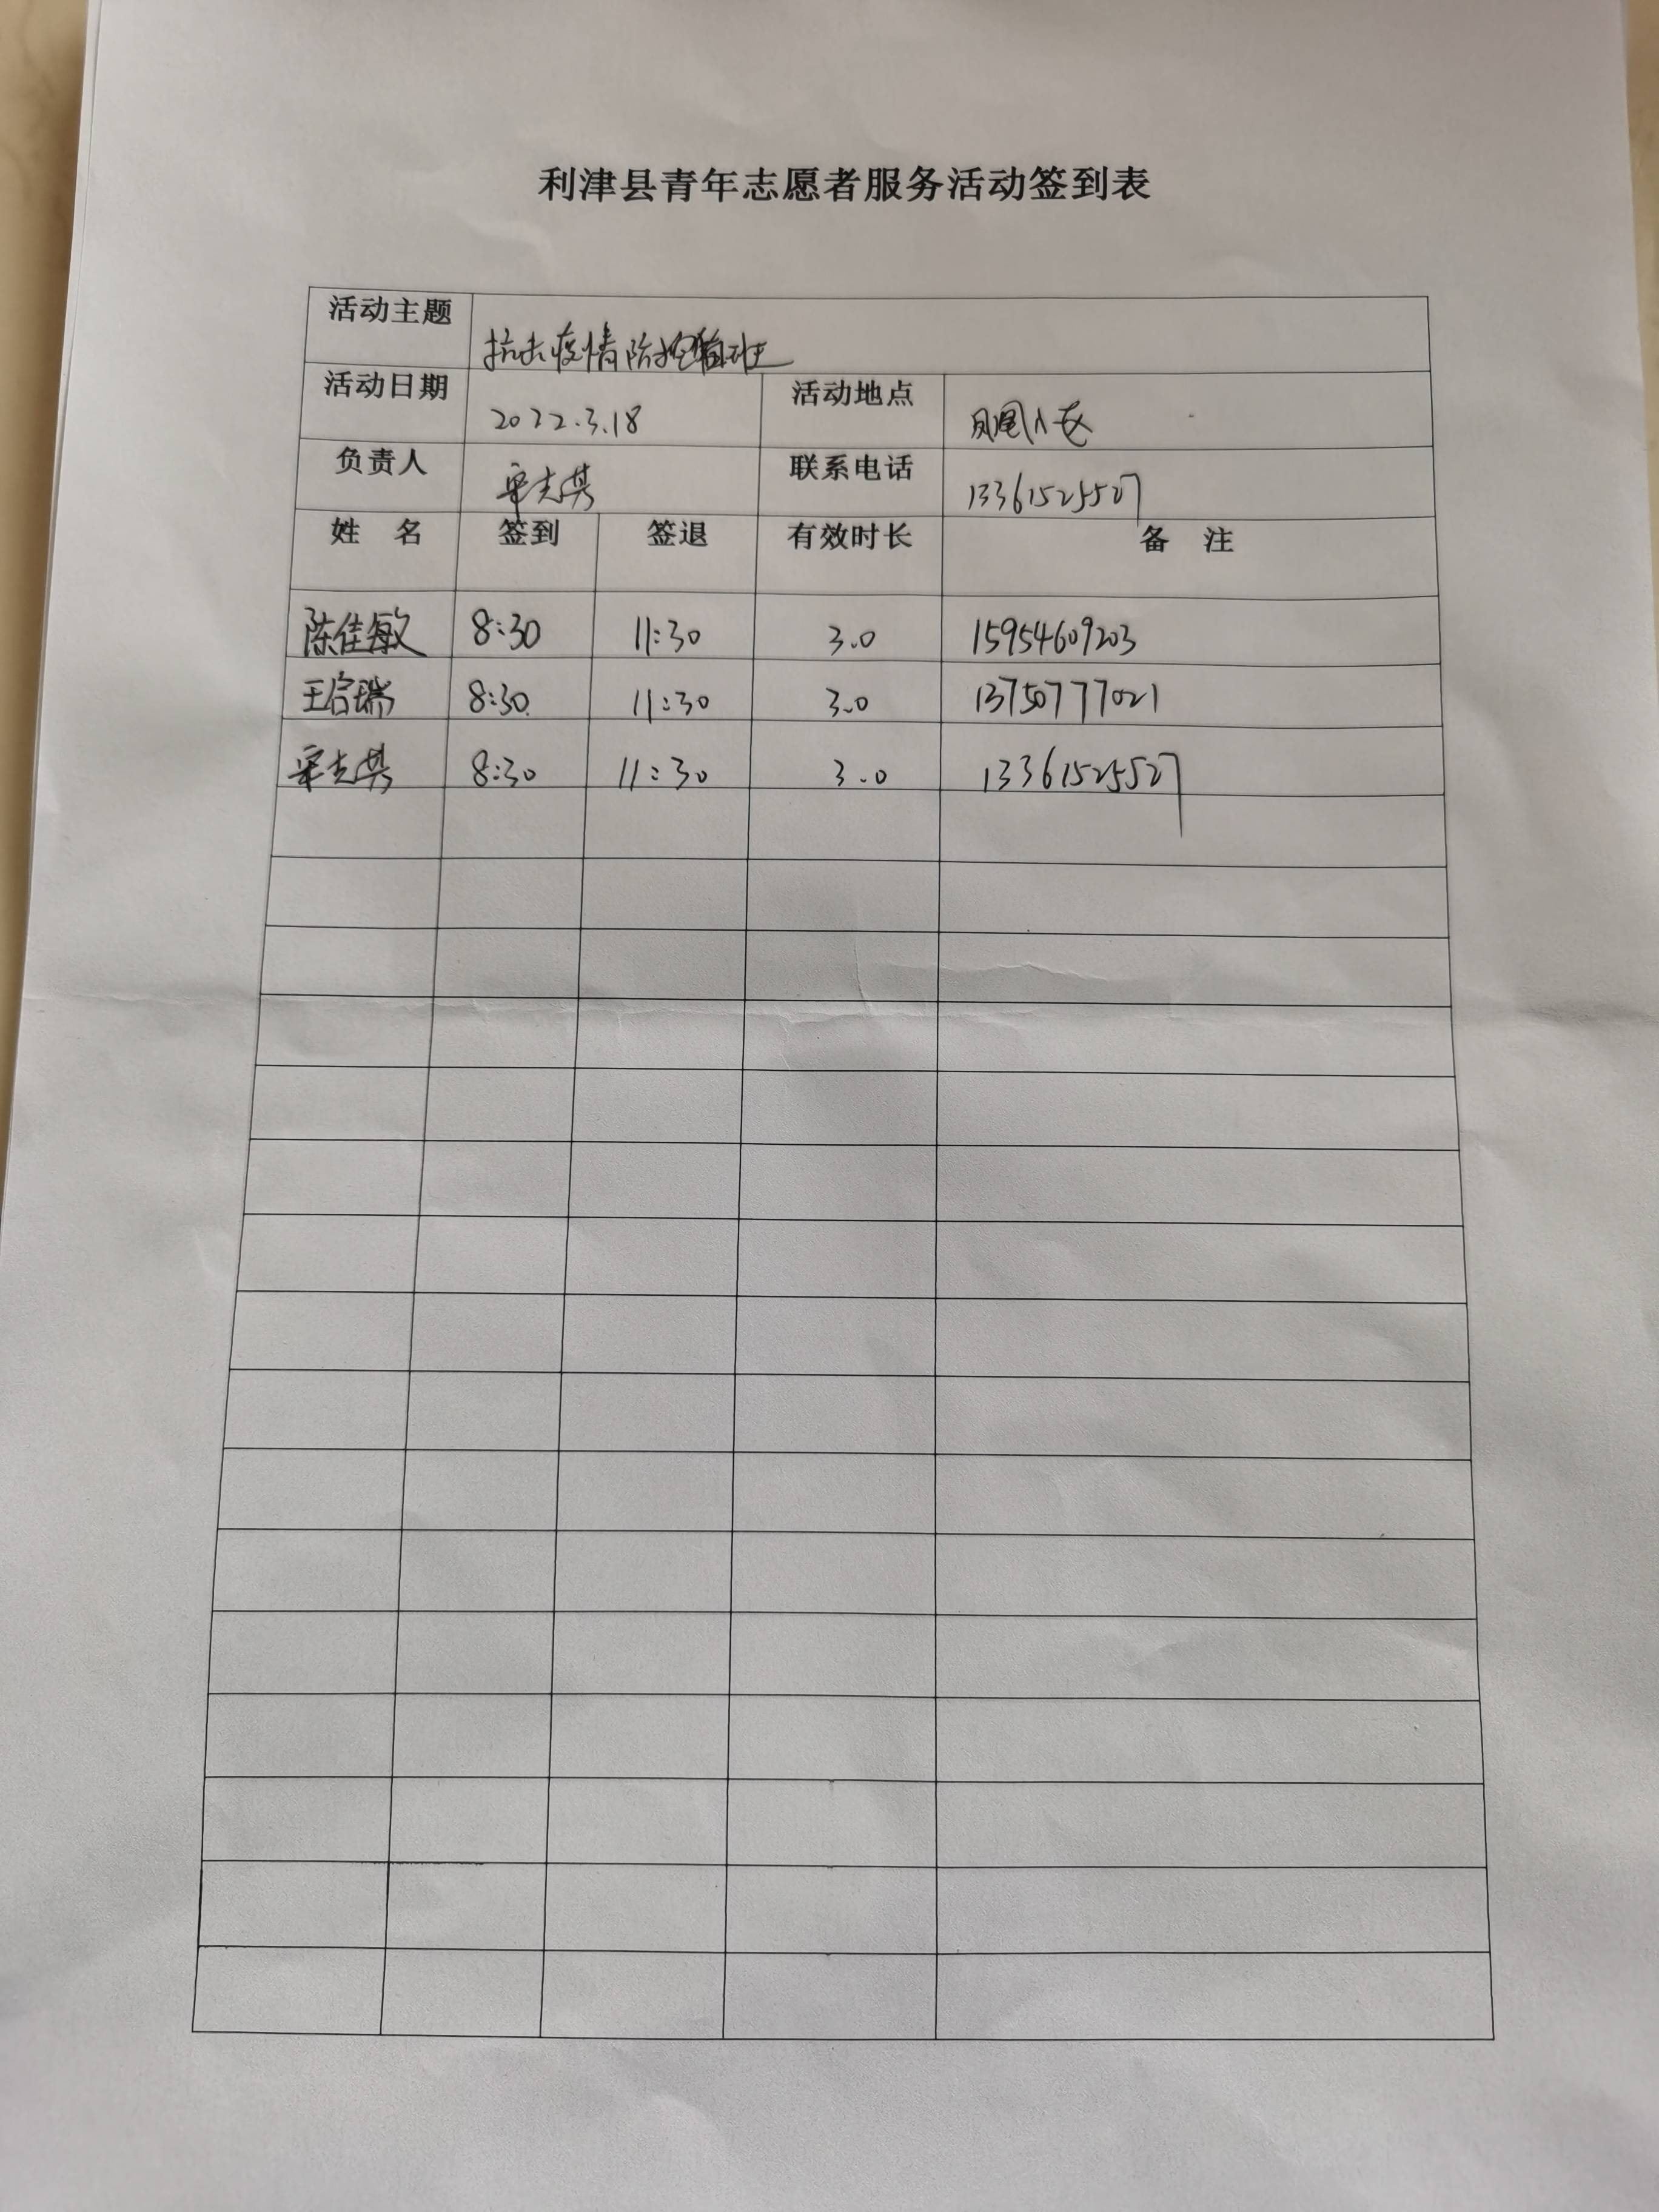 利津县青年志愿者服务活动签到表
活动主题 抗击疫情防控值班
活动日期 2022.3.18 活动地点 凤凰小区
负责人 联系电话 13361525527
姓 名 签到 签退 有效时长 备 注
陈佳敏 8:30 11:30 3.0 15954609203
王启瑞 8:30 11:30 3.0 13750777021
8:30 11:30 3.0 13361525527